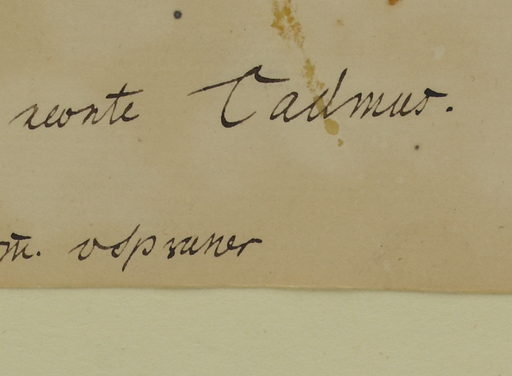 monte Cadmus.
m. v Spruner